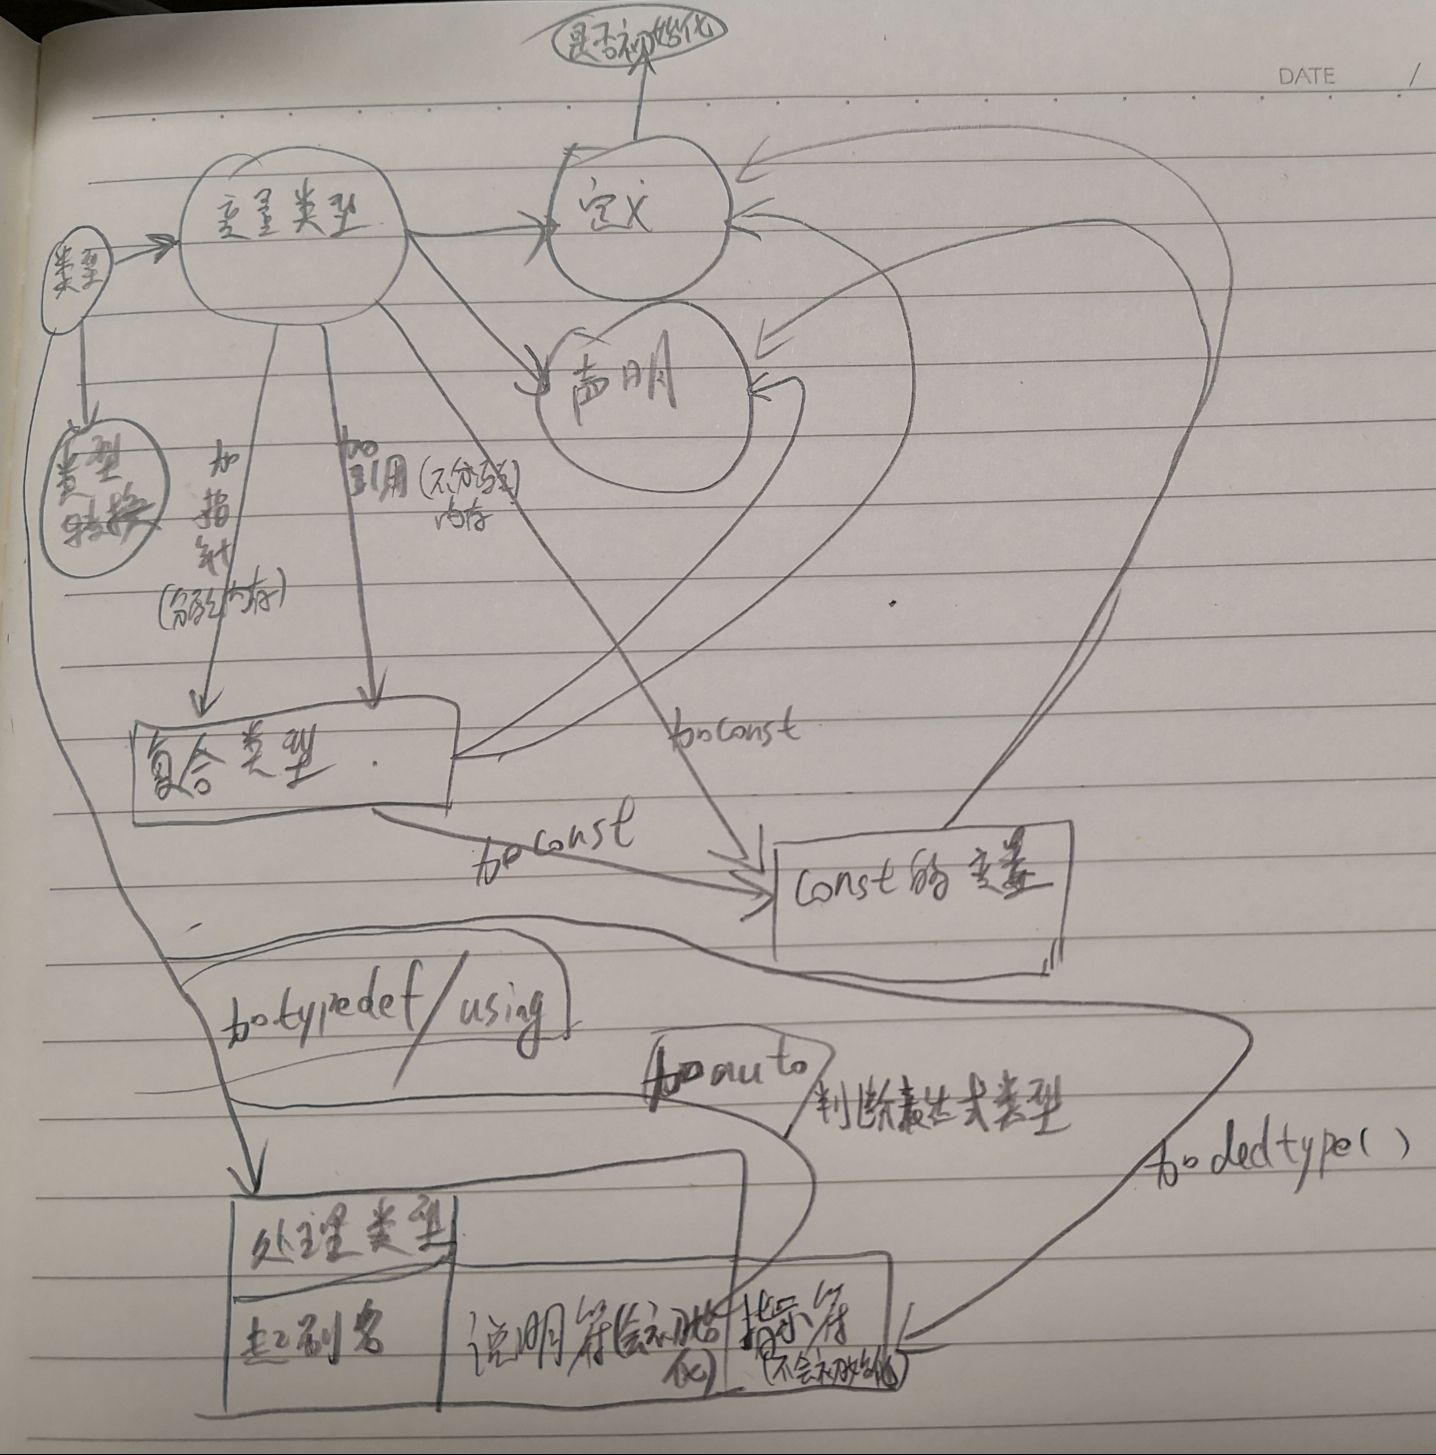 是否初始化
DATE /
变量类型
定义
类型
声明
类型
转换
加
指
针
(分配内存)
加
引用(不分配)
内存
加const
复合类型
加const
const的变量
加typedef/using
加auto
判断表达式类型
加dedtype()
处理类型
起别名
说明符(会初始
化)
指示符
(不会初始化)